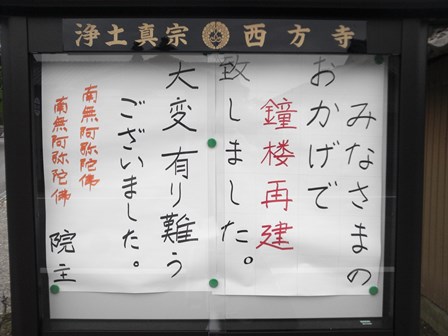 浄土真宗 西方寺
みなさまの
おかげで
鐘楼再建
致しました。
大変有り難う
ございました。
南無阿弥陀佛
南無阿弥陀佛
院主